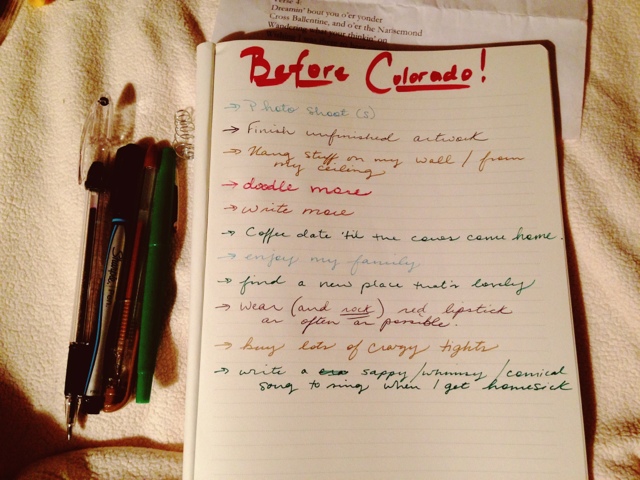 Verse 4:
Dreamin' bout you o'er yonder
Cross Ballentine, and o'er the Nansemond
Wandering what your thinkin' on
Before Colorado!
→ Photo shoot(s)
→ Finish unfinished artwork
→ Hang stuff on my wall / from
my ceiling
→ doodle more
→ write more
→ Coffee date 'til the cows come home.
→ enjoy my family
→ find a new place that's lovely
→ wear (and rock) red lipstick
as often as possible.
→ buy lots of crazy tights
→ write a sappy/whimsy/comical
song to sing when I get homesick
Sharpie